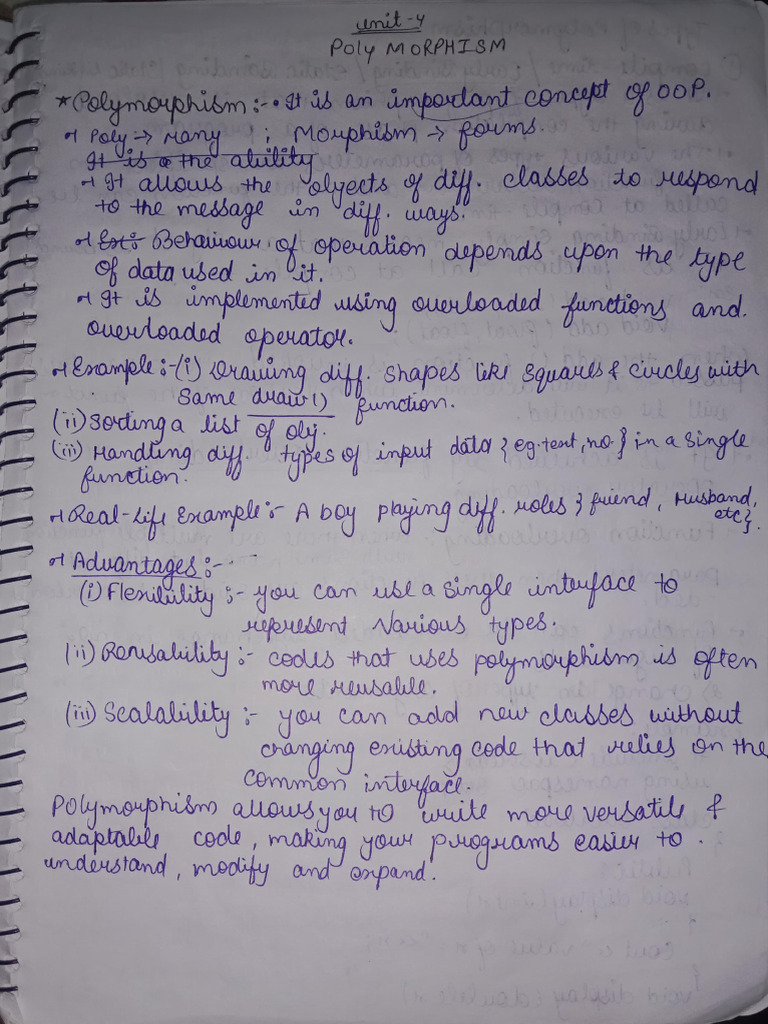 Unit-4
POLYMORPHISM
* Polymorphism :- • It is an important concept of OOP.
→ Poly → Many ; Morphism → forms.
It is a the ability
→ It allows the objects of diff. classes to respond
to the message in diff. ways.
→ Ex:- Behaviour of operation depends upon the type
of data used in it.
→ It is implemented using overloaded functions and
overloaded operator.
→ Example :- (i) Drawing diff. shapes like squares & circles with
same draw() function.
(ii) Sorting a list of obj.
(iii) Handling diff. types of input data { eg. text, no. } in a single
function.
→ Real-Life Example :- A boy playing diff. roles { friend, Husband,
etc }.
→ Advantages :-
(i) Flexibility :- you can use a single interface to
represent various types.
(ii) Reusability :- codes that uses polymorphism is often
more reusable.
(iii) Scalability :- you can add new classes without
changing existing code that relies on the
common interface.
Polymorphism allows you to write more versatile &
adaptable code, making your programs easier to
understand, modify and expand.